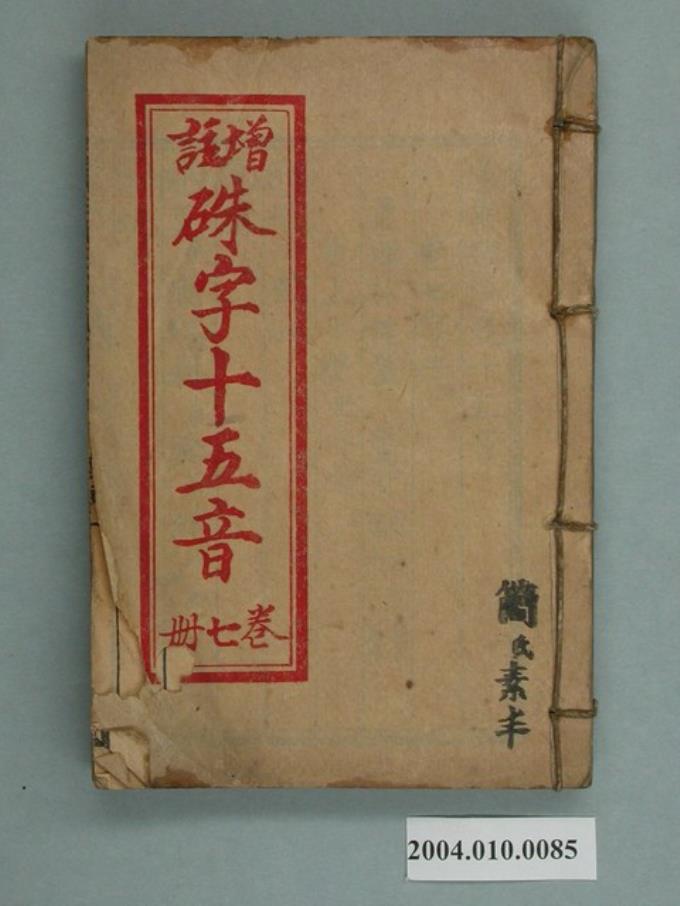 增註
硃字十五音
卷七冊
簡氏素丰
2004.010.0085